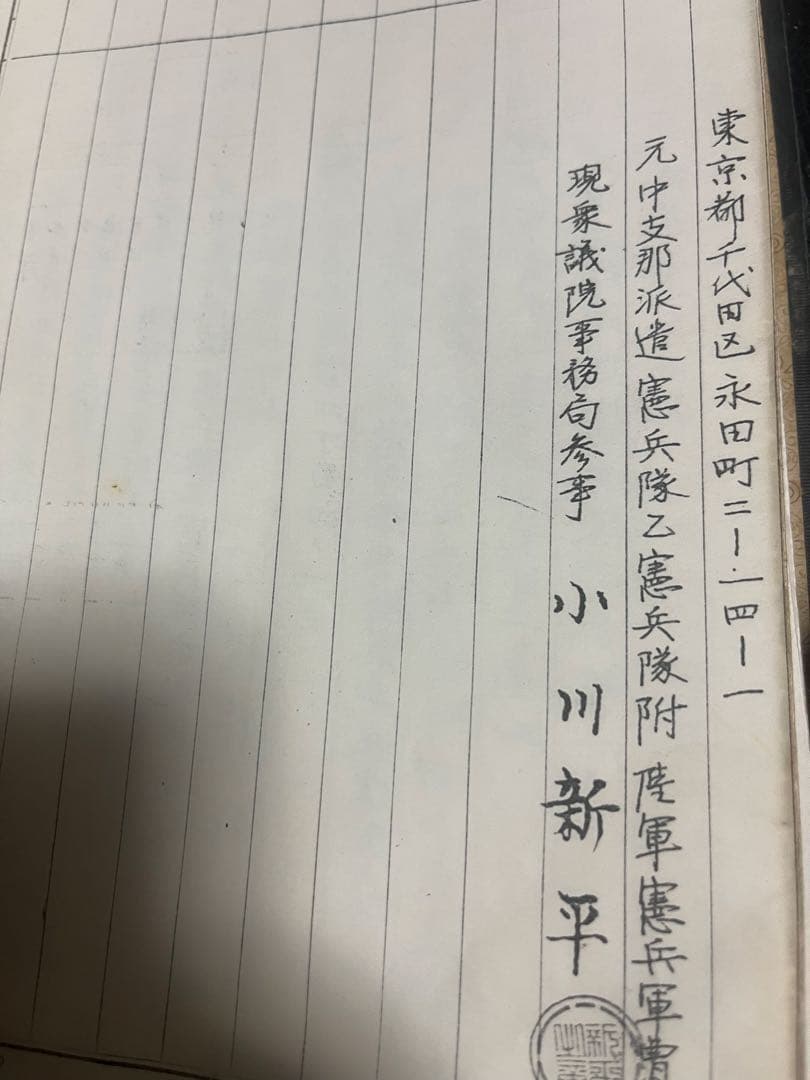 東京都千代田区永田町二ー一四ー一
元中支那派遣憲兵隊乙憲兵隊附 陸軍憲兵軍曹
現衆議院事務局参事 小川新平